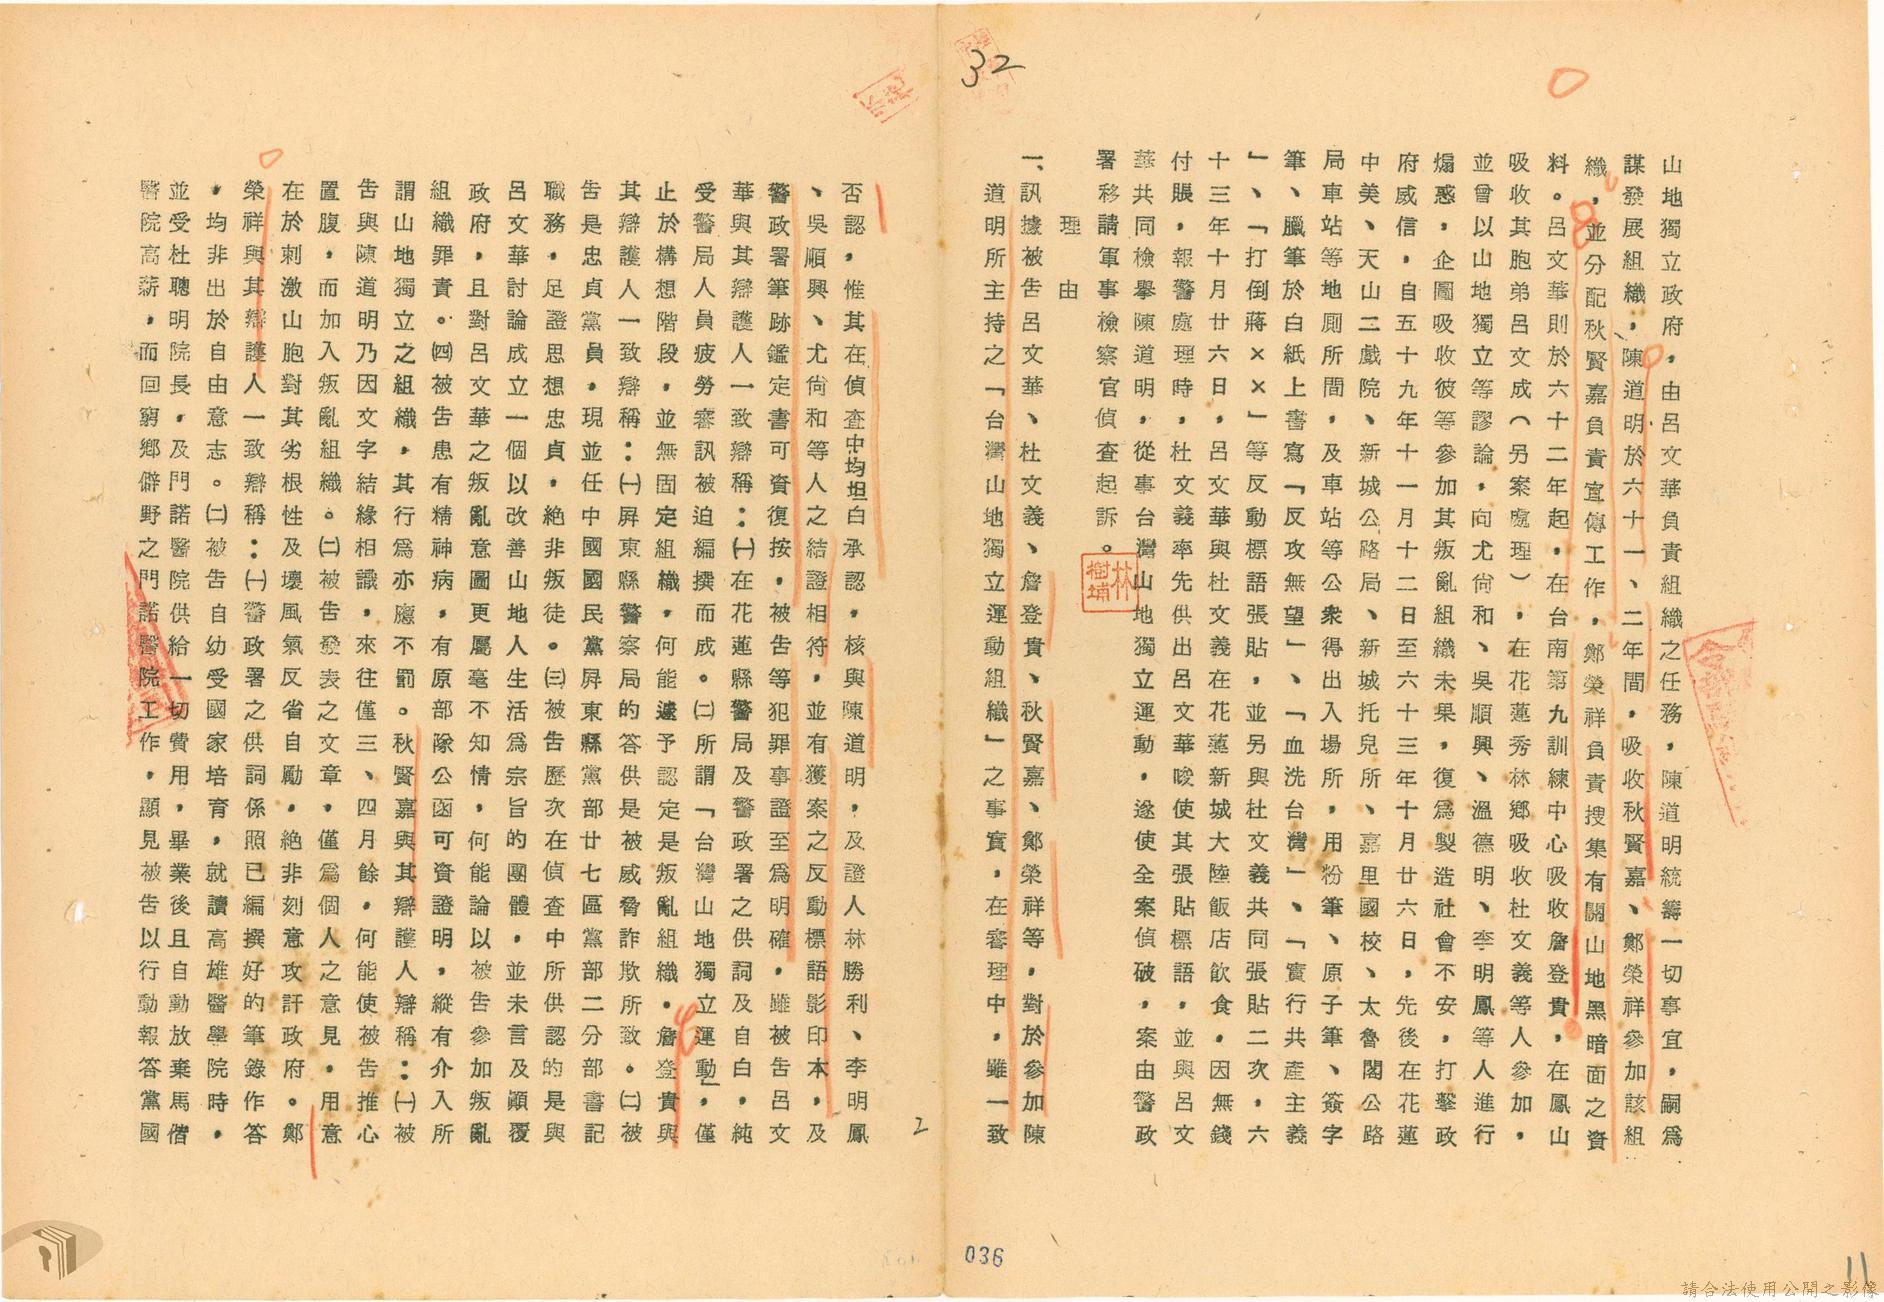 32
山地獨立政府，由呂文華負責組織之任務，陳道明統籌一切事宜，嗣為
謀發展組織，陳道明於六十一、二年間，吸收秋賢嘉、鄭榮祥參加該組
織，並分配秋賢嘉負責宣傳工作，鄭榮祥負責搜集有關山地黑暗面之資
料。呂文華則於六十二年起，在台南第九訓練中心吸收詹登貴，在鳳山
吸收其胞弟呂文成（另案處理），在花蓮秀林鄉吸收杜文義等人參加，
並曾以山地獨立等謬論，向尤尚和、吳順興、溫德明、李明鳳等人進行
煽惑，企圖吸收彼等參加其叛亂組織未果，復為製造社會不安，打擊政
府威信，自五十九年十一月十二日至六十三年十月廿六日，先後在花蓮
中美、天山二戲院、新城公路局、新城托兒所、嘉里國校、太魯閣公路
局車站等地厠所間，及車站等公衆得出入場所，用粉筆、原子筆、簽字
筆、臘筆於白紙上書寫「反攻無望」、「血洗台灣」、「實行共產主義
」、「打倒蔣××」等反動標語張貼，並另與杜文義共同張貼二次，六
十三年十月廿六日，呂文華與杜文義在花蓮新城大陸飯店飲食，因無錢
付賬，報警處理時，杜文義率先供出呂文華唆使其張貼標語，並與呂文
華共同檢舉陳道明，從事台灣山地獨立運動，遂使全案偵破，案由警政
署移請軍事檢察官偵查起訴。
林樹埔
理　由
一、訊據被告呂文華、杜文義、詹登貴、秋賢嘉、鄭榮祥等，對於參加陳
道明所主持之「台灣山地獨立運動組織」之事實，在審理中，雖一致
036
11
否認，惟其在偵查中均坦白承認，核與陳道明，及證人林勝利、李明鳳
、吳順興、尤尚和等人之結證相符，並有獲案之反動標語影印本，及
警政署筆跡鑑定書可資復按，被告等犯罪事證至為明確，雖被告呂文
華與其辯護人一致辯稱：㈠在花蓮縣警局及警政署之供詞及自白，純
受警局人員疲勞審訊被迫編撰而成。㈡所謂「台灣山地獨立運動」，僅
止於構想階段，並無固定組織，何能遽予認定是叛亂組織。詹登貴與
其辯護人一致辯稱：㈠屏東縣警察局的答供是被威脅詐欺所致。㈡被
告是忠貞黨員，現並任中國國民黨屏東縣黨部廿七區黨部二分部書記
職務，足證思想忠貞，絕非叛徒。㈢被告歷次在偵查中所供認的是與
呂文華討論成立一個以改善山地人生活為宗旨的團體，並未言及顚覆
政府，且對呂文華之叛亂意圖更屬毫不知情，何能論以被告參加叛亂
組織罪責。㈣被告患有精神病，有原部隊公函可資證明，縱有介入所
謂山地獨立之組織，其行為亦應不罰。秋賢嘉與其辯護人辯稱：㈠被
告與陳道明乃因文字結緣相識，來往僅三、四月餘，何能使被告推心
置腹，而加入叛亂組織。㈡被告發表之文章，僅為個人之意見，用意
在於刺激山胞對其劣根性及壞風氣反省自勵，絕非刻意攻訐政府。鄭
榮祥與其辯護人一致辯稱：㈠警政署之供詞係照已編撰好的筆錄作答
，均非出於自由意志。㈡被告自幼受國家培育，就讀高雄醫學院時，
並受杜聰明院長，及門諾醫院供給一切費用，畢業後且自動放棄馬偕
醫院高薪，而回窮鄉僻野之門諾醫院工作，顯見被告以行動報答黨國
2
請合法使用公開之影像